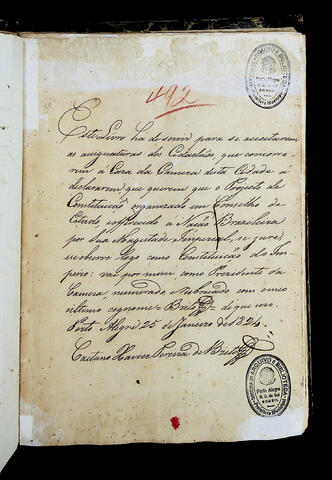 492
Este Livro ha de servir para se acceitarem
as assignaturas dos Cidadãos que concorre-
rem à Caza da Camera desta Cidade a
declararem que querem que o Projecto de
Constituição organizado em Conselho de
Estado offerecido à Nação Brazileira
por Sua Magestade Imperial, se jure
e observe logo como Constituição do Im-
perio: vai por mim como Presidente da
Camera, numerado, e rubricado com o meo
ultimo cognome = Brito = de que uso.
Porto Alegre 25 de Janeiro de 1824.
Caetano Xavier Pereira de Brito
ARQUIVO E BIBLIOTECA
Porto Alegre
R. G. do Sul
BRASIL
Prefeitura Municipal
ARQUIVO E BIBLIOTECA
Porto Alegre
R. G. do Sul
BRASIL
Prefeitura Municipal